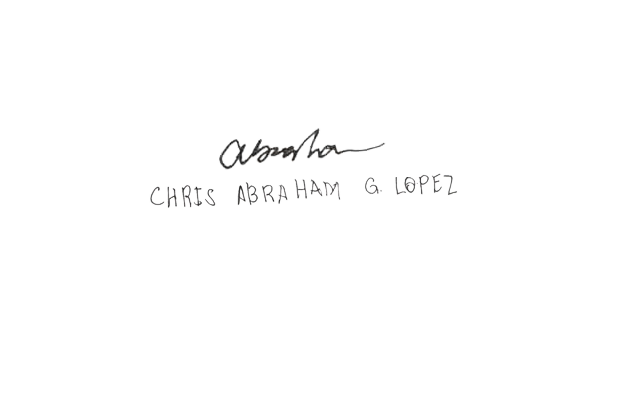 Abraham
CHRIS ABRAHAM G. LOPEZ